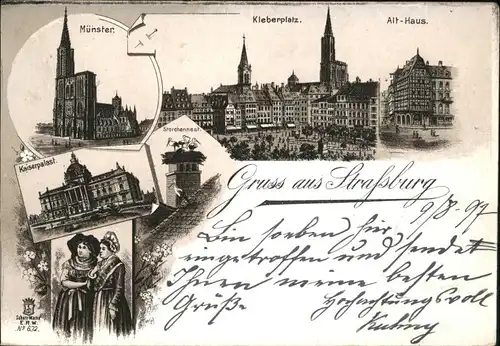 Münster.
Kleberplatz.
Alt-Haus.
Storchennest.
Kaiserpalast.
Gruss aus Straßburg
9/8-97
Bin soeben hier
eingetroffen und sendet
Ihnen meine besten
Grüße. Hochachtungsvoll
Schutz-Marke
E. R. W.
No 632.